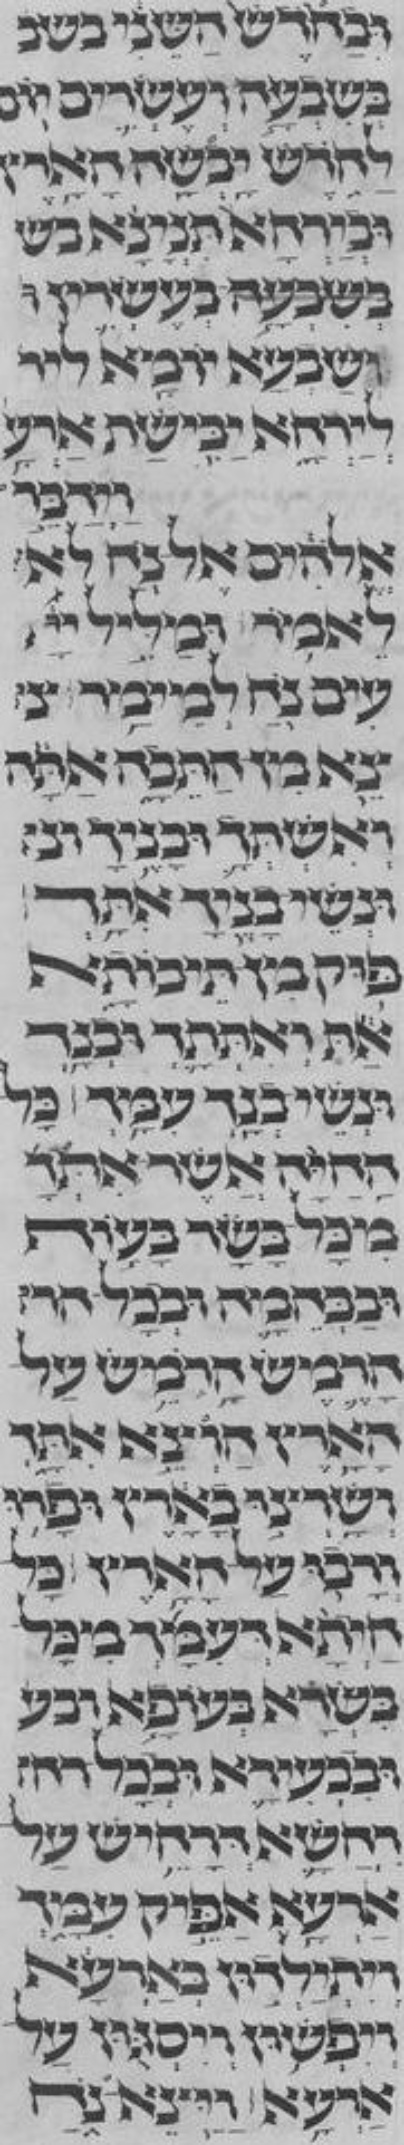 ובחדש השני בשב
בשבעה ועשרים יום
לחדש יבשה הארץ
ובירחא תנינא בש
בשבעה בעשרין ו
ושבעא יומיא ליר
לירחא יבישת ארע
וידבר
אלהים אל נח לא
לאמר ומליל יי
עים נח למיימר צי
צא מן התבה אתה
ואשתך ובניך ונ
ונשי בניך אתך
פוק מן תיבותא
את ואתתך ובנך
ונשי בנך עמך כל
החיה אשר אתך
מיכל בשר בעוף
ובבהמה ובכל הר
הרמש הרמש על
הארץ הויצא אתך
ושרצו בארץ ופרו
ורבו על הארץ כל
חיתא דעמך מיכל
בשרא בעופא ובע
ובבעירא ובכל רח
רחשא דרחיש על
ארעא אפיק עמך
ויתילדון בארעא
ויפשון ויסגון על
ארעא ויצא נח